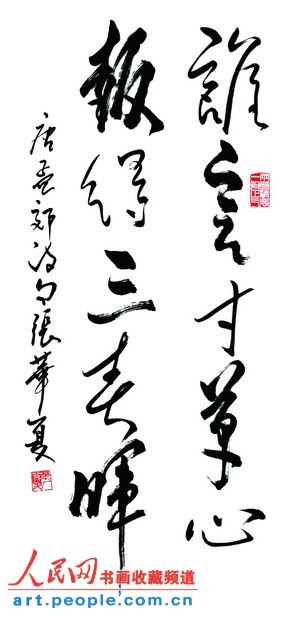 誰言寸草心
報得三春暉
唐孟郊诗句張華夏
人民网 书画收藏频道
art.people.com.cn